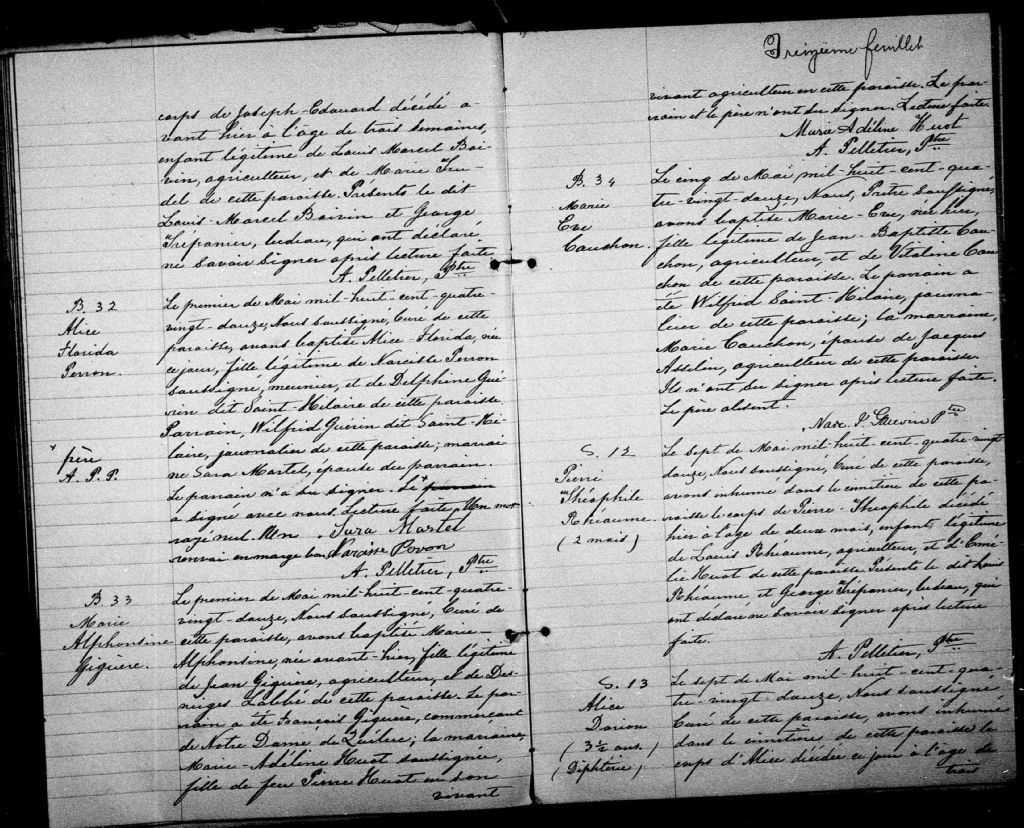 corps de Joseph-Edouard décédé a-
vant hier à l'âge de trois semaines,
enfant légitime de Louis Marcel Boi-
vin, agriculteur, et de Marie Tru-
del de cette paroisse. Présents le dit
Louis-Marcel Boivin et George
Trépanier, bedeau, qui ont déclaré
ne savoir signer après lecture faite.
A. Pelletier, Ptre
B. 32
Alice
Florida
Perron.
Le premier de Mai mil-huit-cent-quatre-
vingt-douze, Nous soussigné, Curé de cette
paroisse, avons baptisé Alice-Florida, née
ce jour, fille légitime de Narcisse Perron
soussigné, meunier, et de Delphine Gué-
rin dit Saint-Hilaire de cette paroisse
Parrain, Wilfrid Guérin dit Saint-Hi-
laire, journalier de cette paroisse; marrai
ne Sara Martel, épouse du parrain.
+ père
A. P. P.
Le parrain n'a su signer. Le + parrain
a signé avec nous. Lecture faite. Un mot
rayé nul. Un Sara Martel
renvoi en marge bon Narcisse Perron
A. Pelletier, Ptre
B. 33
Marie
Alphonsine
Giguère.
Le premier de Mai mil-huit-cent-quatre-
vingt-douze, Nous soussigné, Curé de
cette paroisse, avons baptisé Marie-
Alphonsine, née avant-hier, fille légitime
de Jean Giguère, agriculteur, et de Des-
neiges Labbé de cette paroisse. Le par-
rain a été François Giguère, commerçant
de Notre Dame de Québec; la marraine,
Marie-Adéline Huot soussignée,
fille de feu Pierre Huot en son
vivant
Treizième feuillet
vivant agriculteur en cette paroisse. Le par-
rain et le père n'ont su signer. Lecture faite.
Marie Adéline Huot
A. Pelletier, Ptre
B. 34
Marie
Eve
Cauchon.
Le cinq de Mai, mil-huit-cent-qua-
tre-vingt-douze, Nous, Prêtre soussigné,
avons baptisé Marie-Eve, née hier,
fille légitime de Jean-Baptiste Cau-
chon, agriculteur, et de Vitaline Cau-
chon de cette paroisse. Le parrain a
été Wilfrid Saint-Hilaire, journa-
lier de cette paroisse; la marraine,
Marie Cauchon, épouse de Jacques
Asselin, agriculteur de cette paroisse.
Ils n'ont su signer après lecture faite.
Le père absent.
Narc. J. Ptre
S. 12
Pierre
Théophile
Rhéaume.
(2 mois)
Le sept de Mai mil-huit-cent-quatre-vingt
douze, Nous soussigné, Curé de cette paroisse,
avons inhumé dans le cimetière de cette pa-
roisse le corps de Pierre-Théophile décédé
hier à l'âge de deux mois, enfant légitime
de Louis Rhéaume, agriculteur, et d'Émé-
lie Huot de cette paroisse. Présents le dit Louis
Rhéaume et George Trépanier, bedeau, qui
ont déclaré ne savoir signer après lecture
faite.
A. Pelletier, Ptre
S. 13
Alice
Dorion
(3 ½ ans.)
(Diphterie)
Le sept de Mai mil-huit-cent-qua-
tre-vingt-douze, Nous soussigné,
Curé de cette paroisse, avons inhumé
dans le cimetière de cette paroisse le
corps d'Alice décédée ce jour à l'âge de
trois